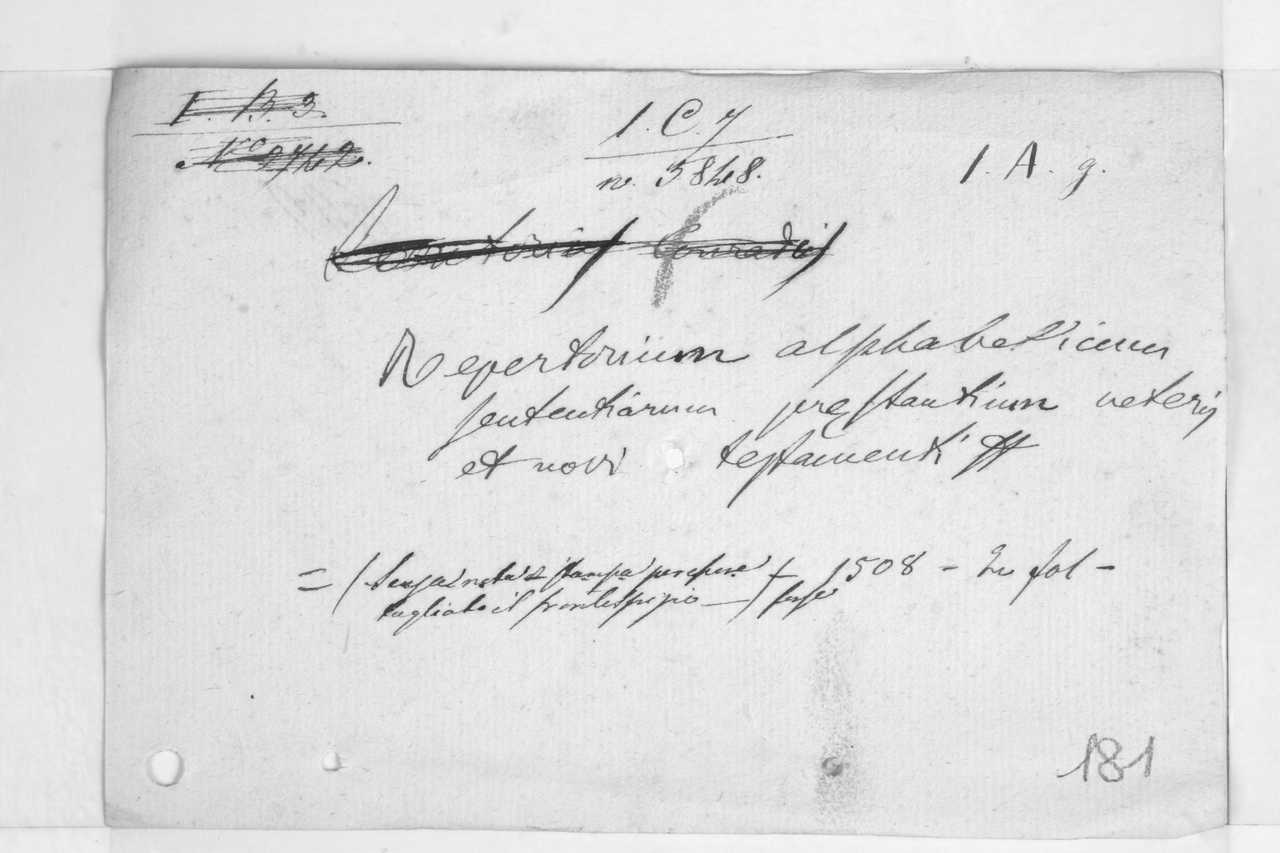 I. B. 3.
N.ro 2742.
1. C. 7
n. 3848.
1. A. g.
Repertorium alphabeticum
sententiarum prestantium veteris
et novi testamenti
= (senza nota di stampa per essere
tagliato il frontespizio —) forse
1508 - In fol -
181